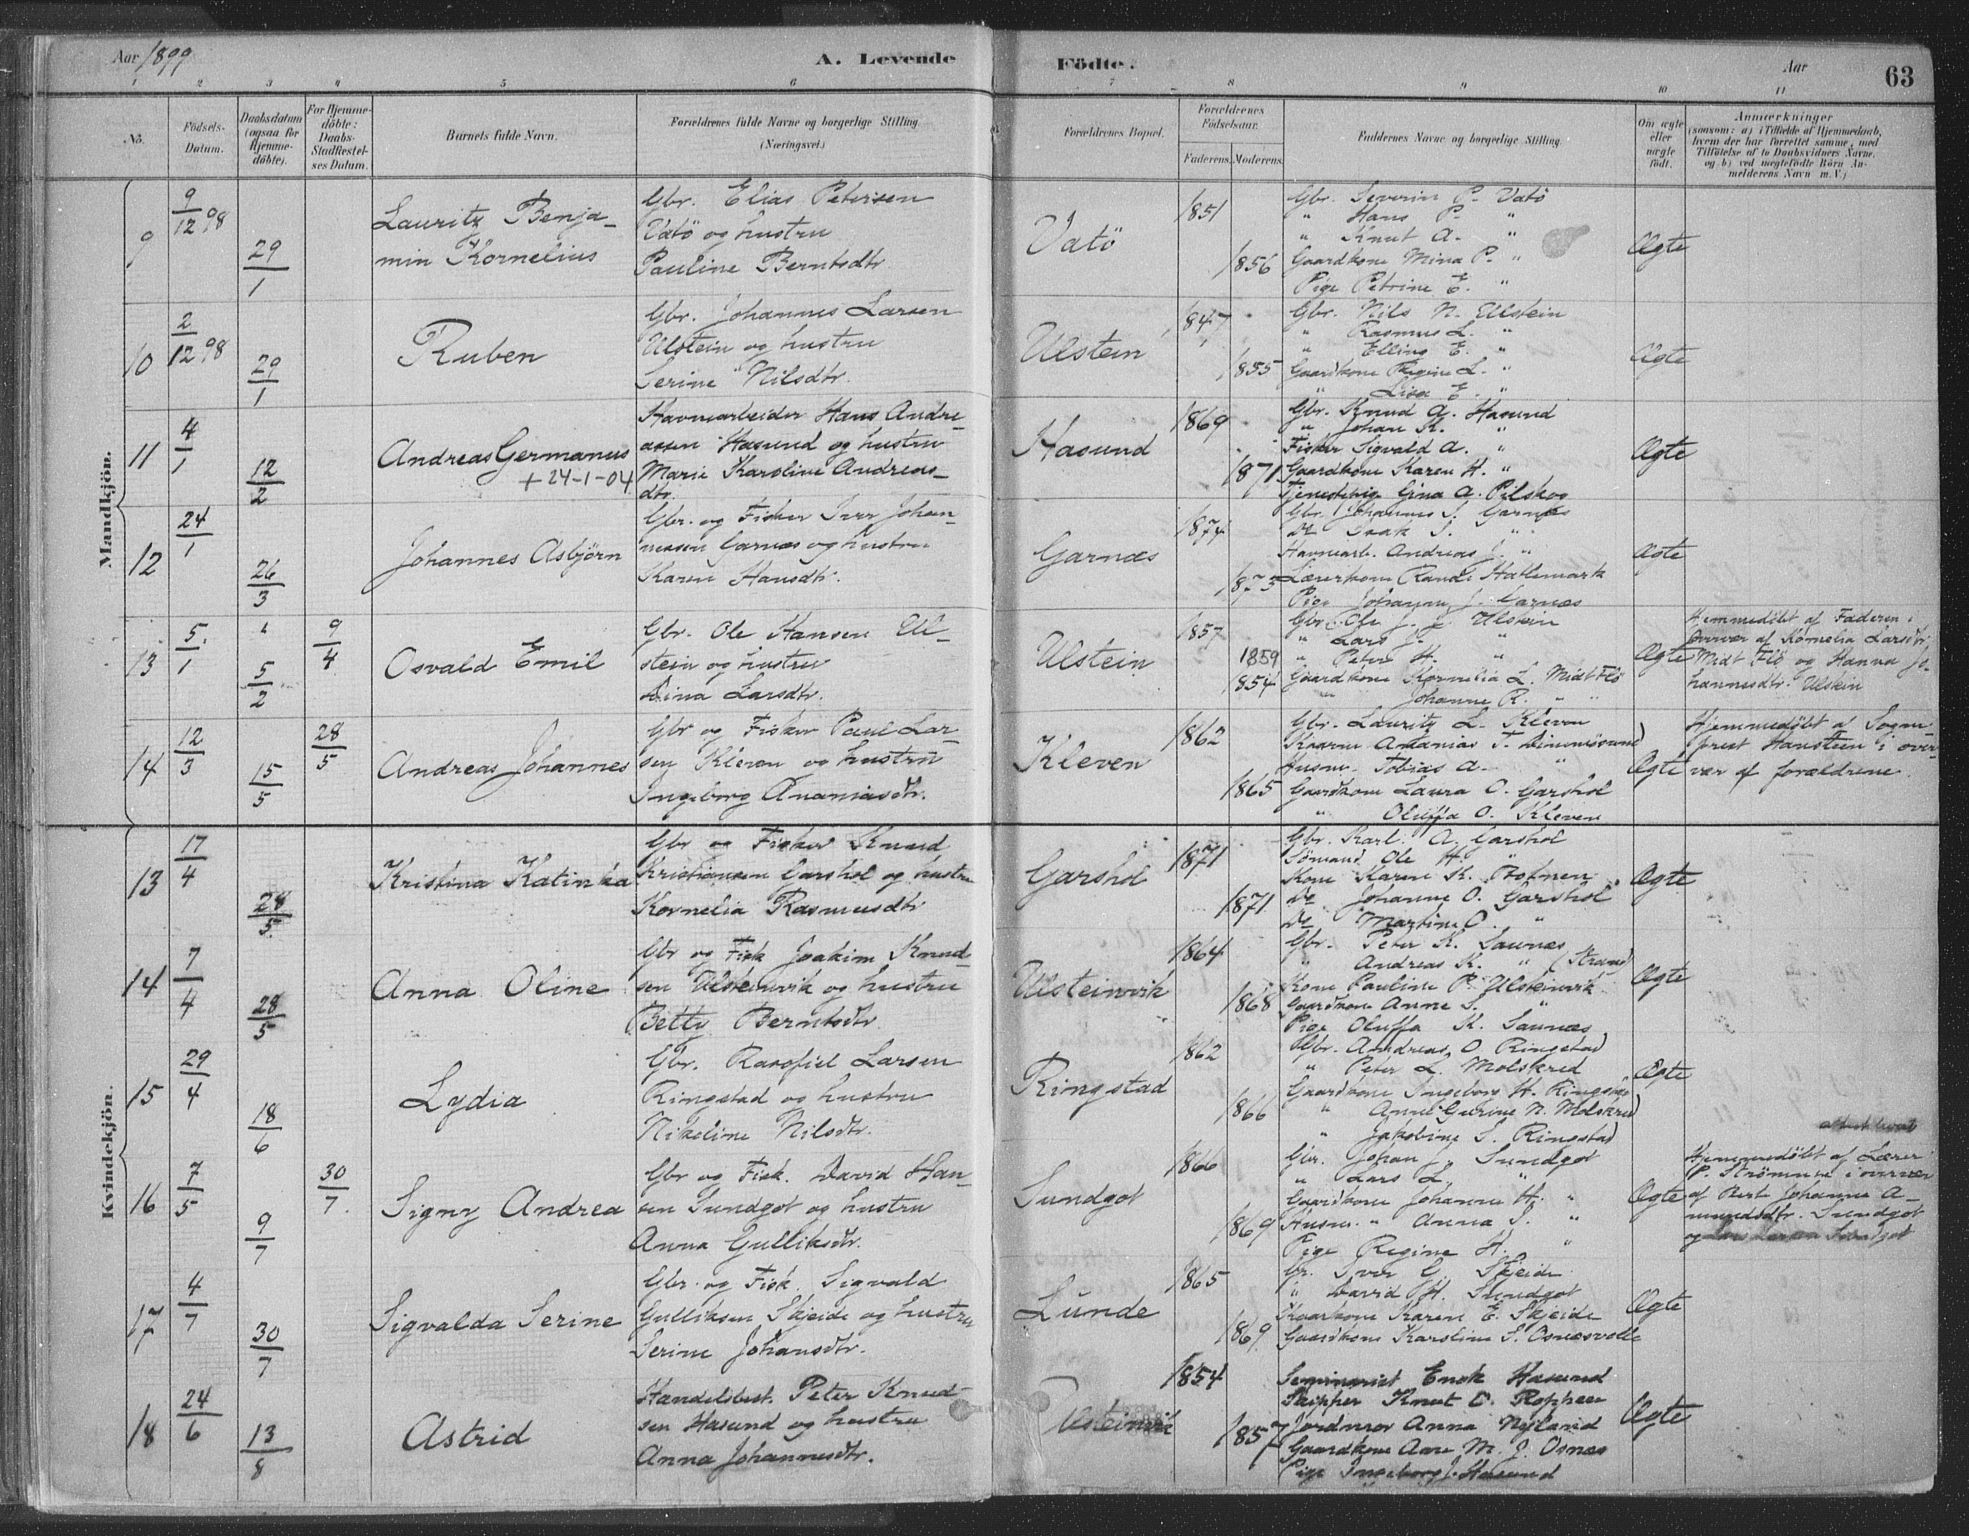 Aar 1899
A. Levende
Födte.
Aar
63
1 2 3 4 5 6 7 8 9 10 11
No.
Födsels-
Datum.
Daabsdatum
(ogsaa for
Hjemme-
döbte).
For Hjemme-
döbte:
Daabs-
Stadfæstel-
ses Datum.
Barnets fulde Navn.
Forældrenes fulde Navne og borgerlige Stilling.
(Næringsvei.)
Forældrenes Bopæl.
Forældrenes
Födselsaar.
Faderens. Moderens.
Faddernes Navne og borgerlige Stilling.
Om ægte
eller
uægte
födt.
Anmærkninger
(saasom: a) i Tilfælde af Hjemmedaab,
hvem der har forrettet samme, med
Tilföielse af to Daabsvidners Navne,
og b) ved uægtefödte Börn An-
melderens Navn m. V.)
Mandkjön.
9
9/12 98
29/1
Lauritz Benja-
min Kornelius
Gbr. Elias Petersen
Vatö og hustru
Pauline Berntsdtr.
Vatö
1851
1856
Gbr. Severin P. Vatö
" Hans P. "
" Knut A. "
Gaardkone Mina P. "
Pige Petrine E. "
Ægte
10
2/12 98
29/1
Ruben
Gbr. Johannes Larsen
Ulstein og hustru
Serine Nilsdtr.
Ulstein
1847
1855
Gbr. Nils N. Ulstein
" Rasmus L. "
" Elling E. "
Gaardkone Regine L. "
" Lisa E. "
Ægte
11
4/1
12/2
Andreas Germanus
+ 24-1-04
Havnearbeider Hans Andre-
assen Hasund og hustru
Marie Karoline Andreas-
dtr.
Hasund
1869
1871
Gbr. Knud A. Hasund
" Johan K. "
Fisker Sigvald A. "
Gaardkone Karen H. "
Tjenestepige Gina A. Pilskog
Ægte
12
24/1
26/3
Johannes Asbjörn
Gbr. og Fisker Iver Johan-
nessen Garnæs og hustru
Karen Hansdtr.
Garnæs
1874
1873
Gbr. Johannes I. Garnæs
Do Isak I. "
Havnearb. Andreas J. "
Lærerkone Randi Hatlemark
Pige Johanne J. Garnæs
Ægte
13
5/1
5/2
9/4
Osvald Emil
Gbr. Ole Hansen Ul-
stein og hustru
Lina Larsdtr.
Ulstein
1857
1859
1854
Gbr. Ole J. J. Ulstein
" Lars J. "
" Peter H. "
Gaardkone Kornelia L. Midt Flö
" Johanne R. "
Ægte
Hjemmedöbt af Faderen i
overvær af Kornelia Larsdtr.
Midt Flö og Hanna Jo-
hannesdtr. Ulstein
14
12/3
15/5
28/5
Andreas Johannes
Gbr og Fisker Paul Lar-
sen Kleven og hustru
Ingeborg Ananiasdtr.
Kleven
1862
1865
Gbr. Lauritz L. Kleven
Kaarm. Antanias T. Dimmösund
Husm. Tobias A. "
Gaardkone Laura O. Garshol
" Oluffa O. Kleven
Ægte
Hjemmedöbt af Sogne-
prest Hansteen i over-
vær af forældrene.
Kvindekjön.
13
17/4
28/5
Kristina Katinka
Gbr og Fisker Knud
Kristiansen Garshol og hustru
Kornelia Rasmusdtr
Garshol
1871
1871
Gbr. Karl A. Garshol
Sömand Ole H. "
Kone Karen K. Botnen
Do Johanne O. Garshol
Do Martine O. "
Ægte
14
7/4
28/5
Anna Oline
Gbr og Fisk Joakim Knud-
sen Ulsteinvik og hustru
Betty Berntsdtr
Ulsteinvik
1864
1868
Gbr. Peter K. Saunæs
" Andreas K. " (Strand)
Kone Pauline P. Ulsteinvik
Gaardkone Anne S. "
Pige Oluffa K. Saunæs
Ægte
15
29/4
18/6
Lydia
Gbr. Rasofiel Larsen
Ringstad og hustru
Nikoline Nilsdtr.
Ringstad
1862
1866
Gbr. Andreas O. Ringstad
" Peter L. Molskred
Gaardkone Ingeborg H. Ringstad
" Anne Gurine N. Molskred
" Jakobine S. Ringstad
Ægte
16
7/5
9/7
30/7
Signy Andrea
Gbr og Fisk. David Han-
sen Sundgot og hustru
Anna Gulliksdtr.
Sundgot
1866
1869
Gbr. Johan J. Sundgot
" Lars L. "
Gaardkone Johanne H. "
Husm. " Anna S. "
Pige Regine H. "
Ægte
Hjemmedöbt af Lærer
P. Strömmen i overvær
af Bert Johanna A-
mundsdtr. Sundgot
og Lars Larsen Sundgot
17
4/7
30/7
Sigvalda Serine
Gbr. og Fisk. Sigvald
Gulliksen Skjeide og hustru
Serine Johansdtr.
Lunde
1865
1869
Gbr. Iver G. Skjeide
" David H. Sundgot
Kaarkone Karen E. Skjeide
Gaardkone Karoline S. Osnæsvolle
Ægte
18
24/6
13/8
Astrid
Handelsbest. Peter Knud-
sen Hasund og hustru
Anna Johannesdtr.
Ulsteinvik
1854
1857
Seminarist Enok Hasund
Skipper Knut O. Roppen
Jordmor Anna Nyland
Gaardkone Ane M. J. Osnæs
Pige Ingeborg J. Hasund
Ægte